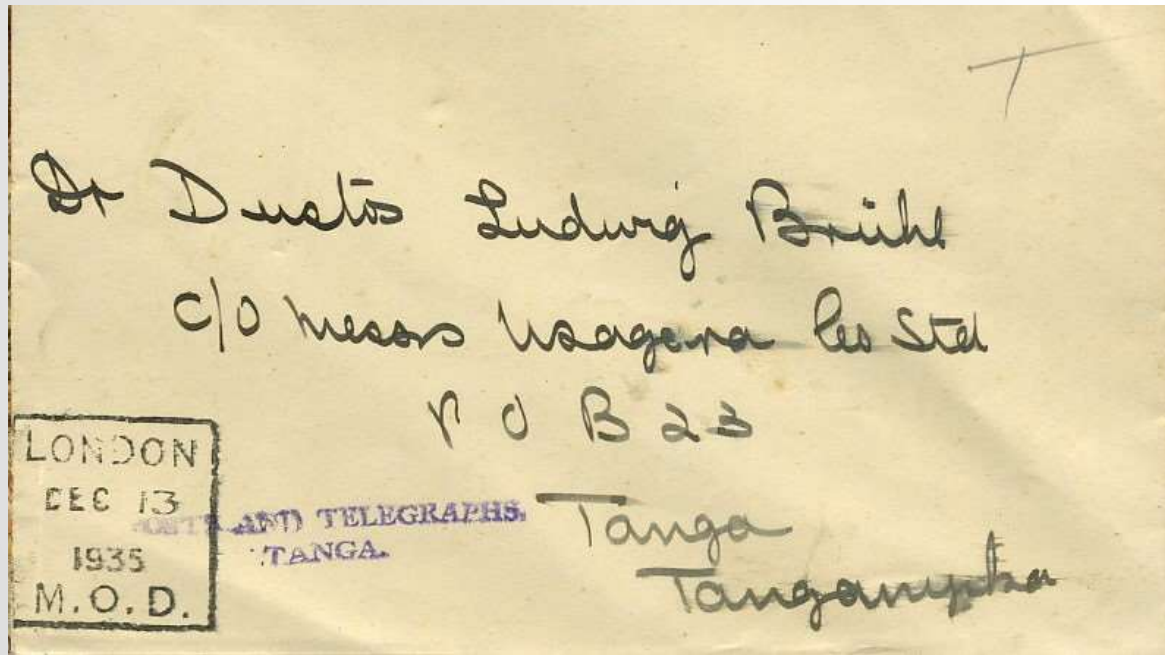 T
Dr Dustos Ludwig Brühl
c/o Messrs Usagara Co Ltd
P O B 23
Tanga
Tanganyika
LONDON
DEC 13
1935
M.O.D.
POSTS AND TELEGRAPHS.
TANGA.